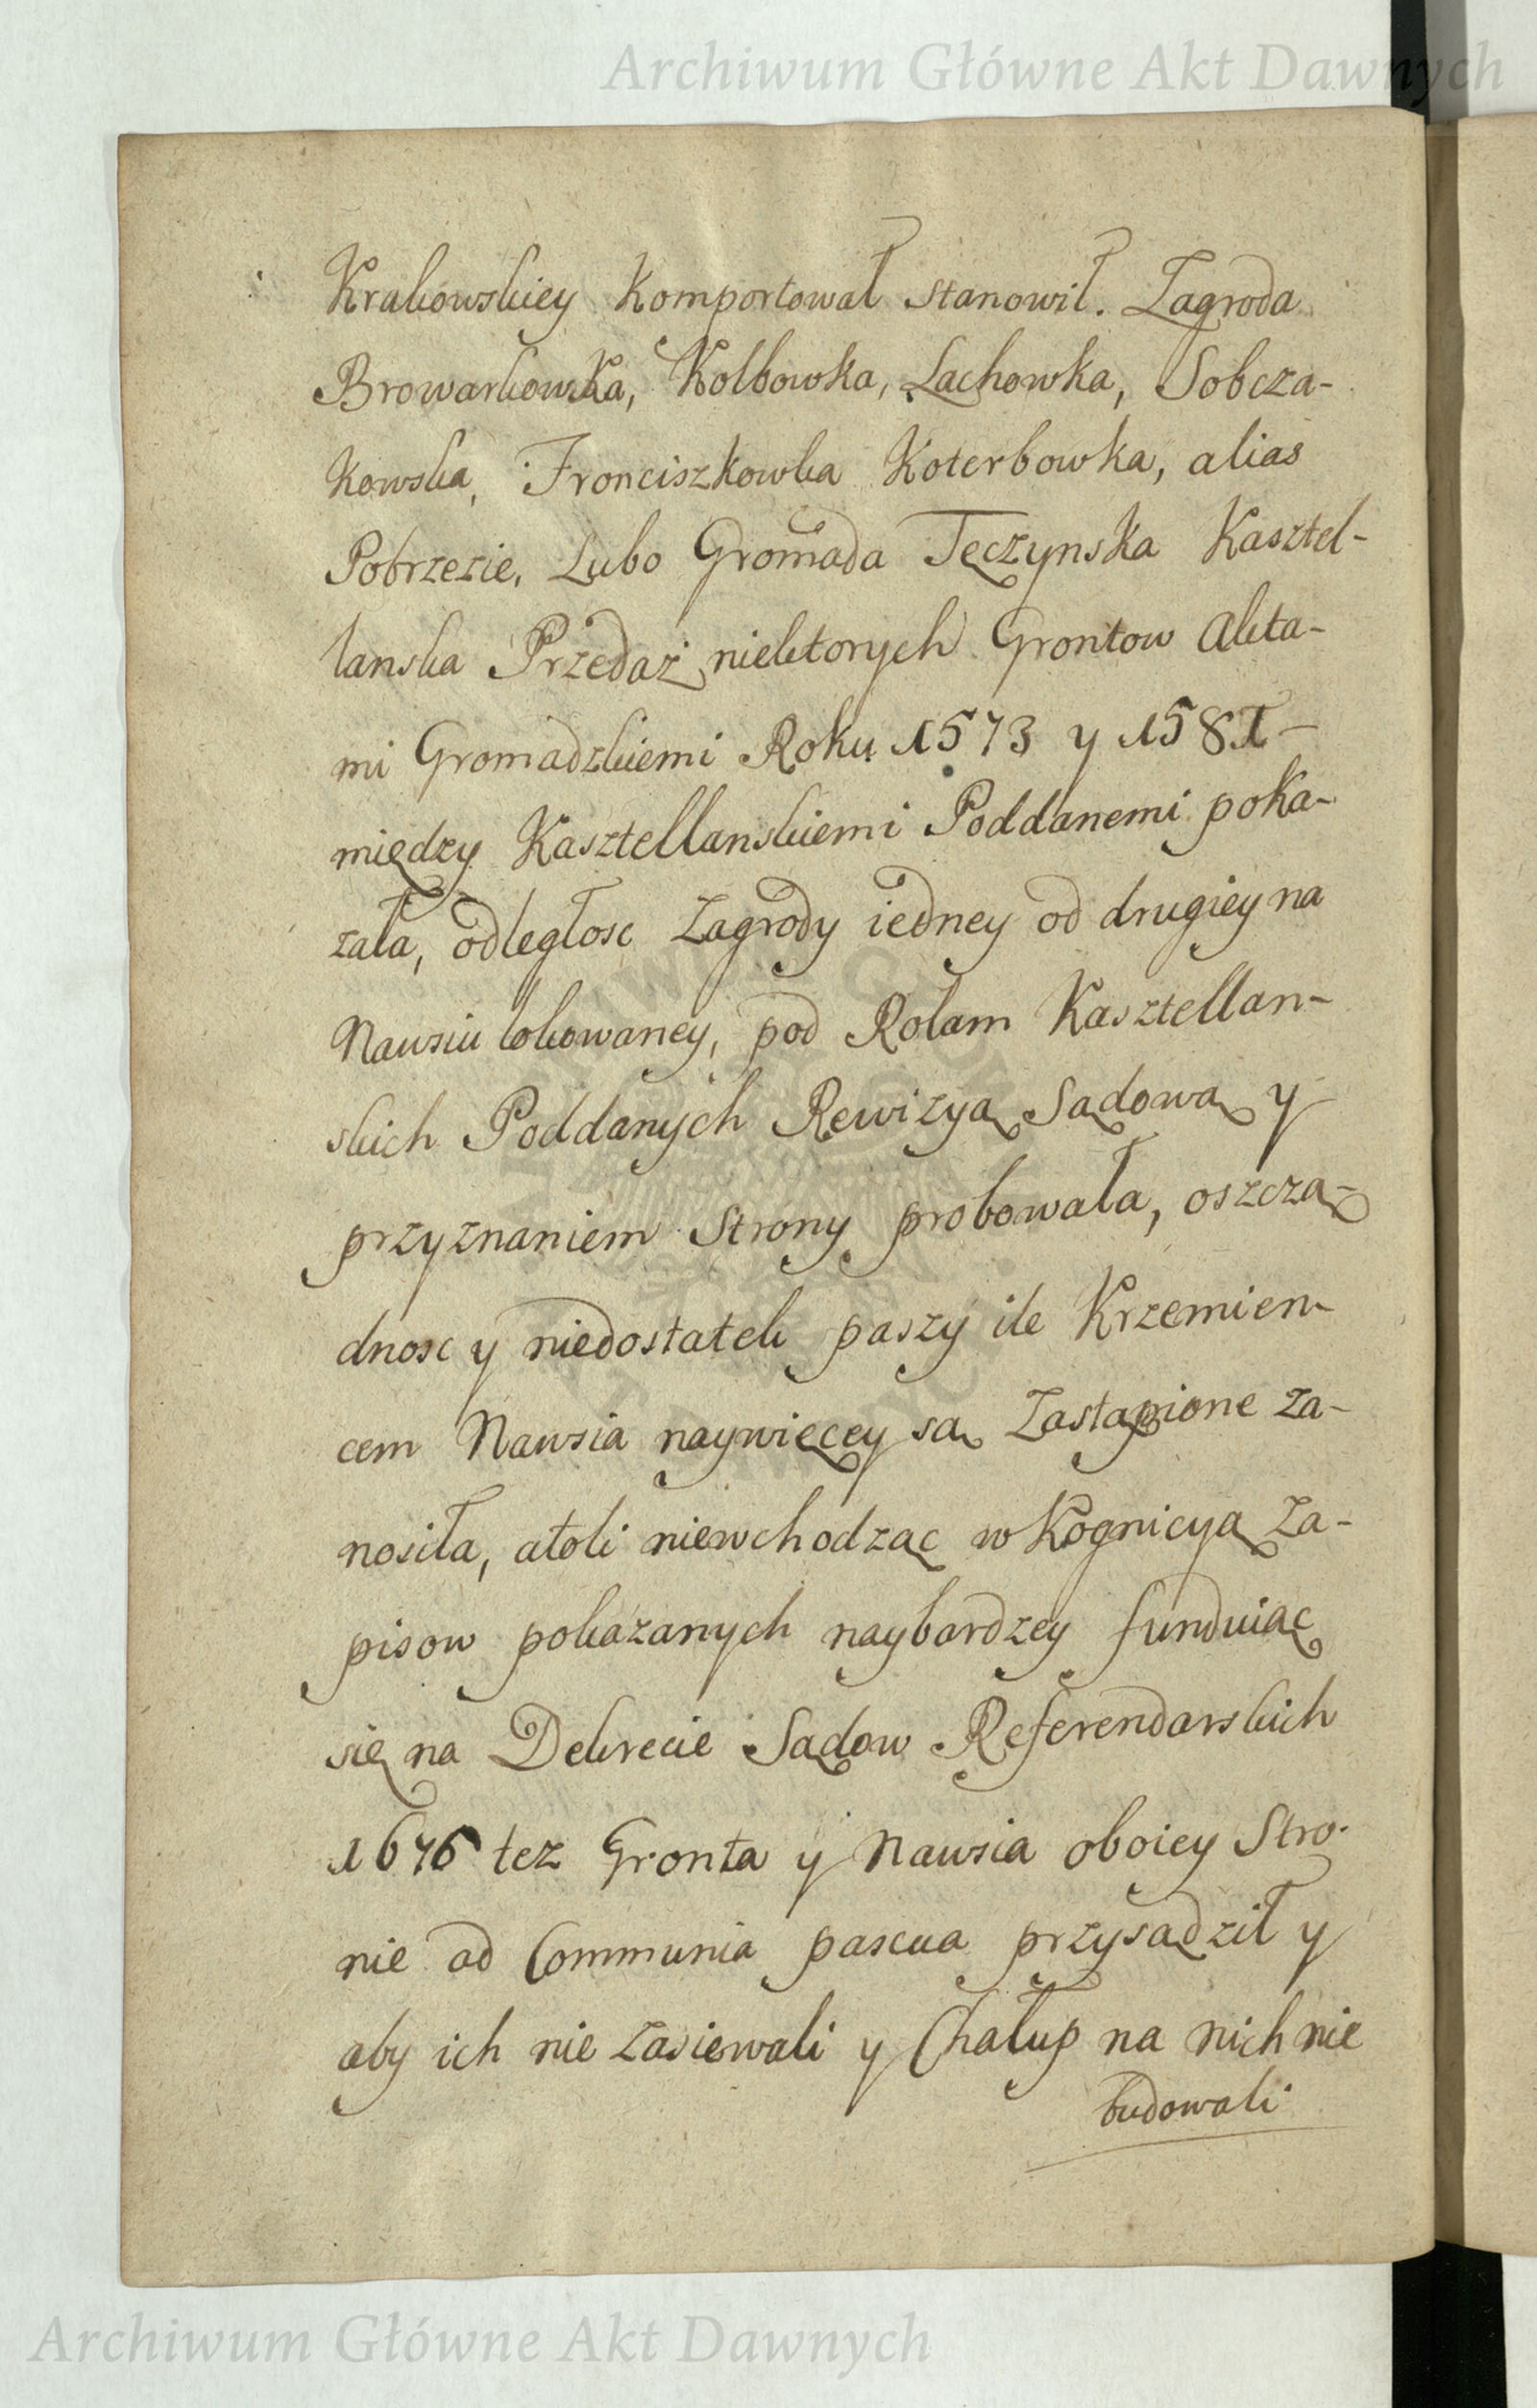 Archiwum Główne Akt Dawnych
Krakowskiey Komportował stanowił. Zagroda
Browarkowska, Kolbowka, Lachowka, Sobcza-
kowska, Fronciszkowka Koterbowka, alias
Pobrzezie, Lubo Gromada Tęczynska Kasztel-
lanska Przedaż niektorych Grontow Akta-
mi Gromadzkiemi Roku 1573 y 1581 -
między Kasztellanskiemi Poddanemi poka-
zała, odległosc Zagrody iedney od drugiey na
Nawsiu lokowaney, pod Rolam Kasztellan-
skich Poddanych Rewizyą Sądową y
przyznaniem Strony probowała, oszczą-
dnosc y niedostatek paszy ile Krzemien-
cem Nawsia naywięcey są Zastąpione za-
nosiła, atoli niewchodząc w Kognicyą Za-
pisow pokazanych naybardzey funduiąc
się na Dekrecie Sądow Referendarskich
1676 też Gronta y Nawsia oboiey Stro-
nie ad Communia pascua przysądził y
aby ich nie zasiewali y Chałup na nich nie
budowali
Archiwum Główne Akt Dawnych